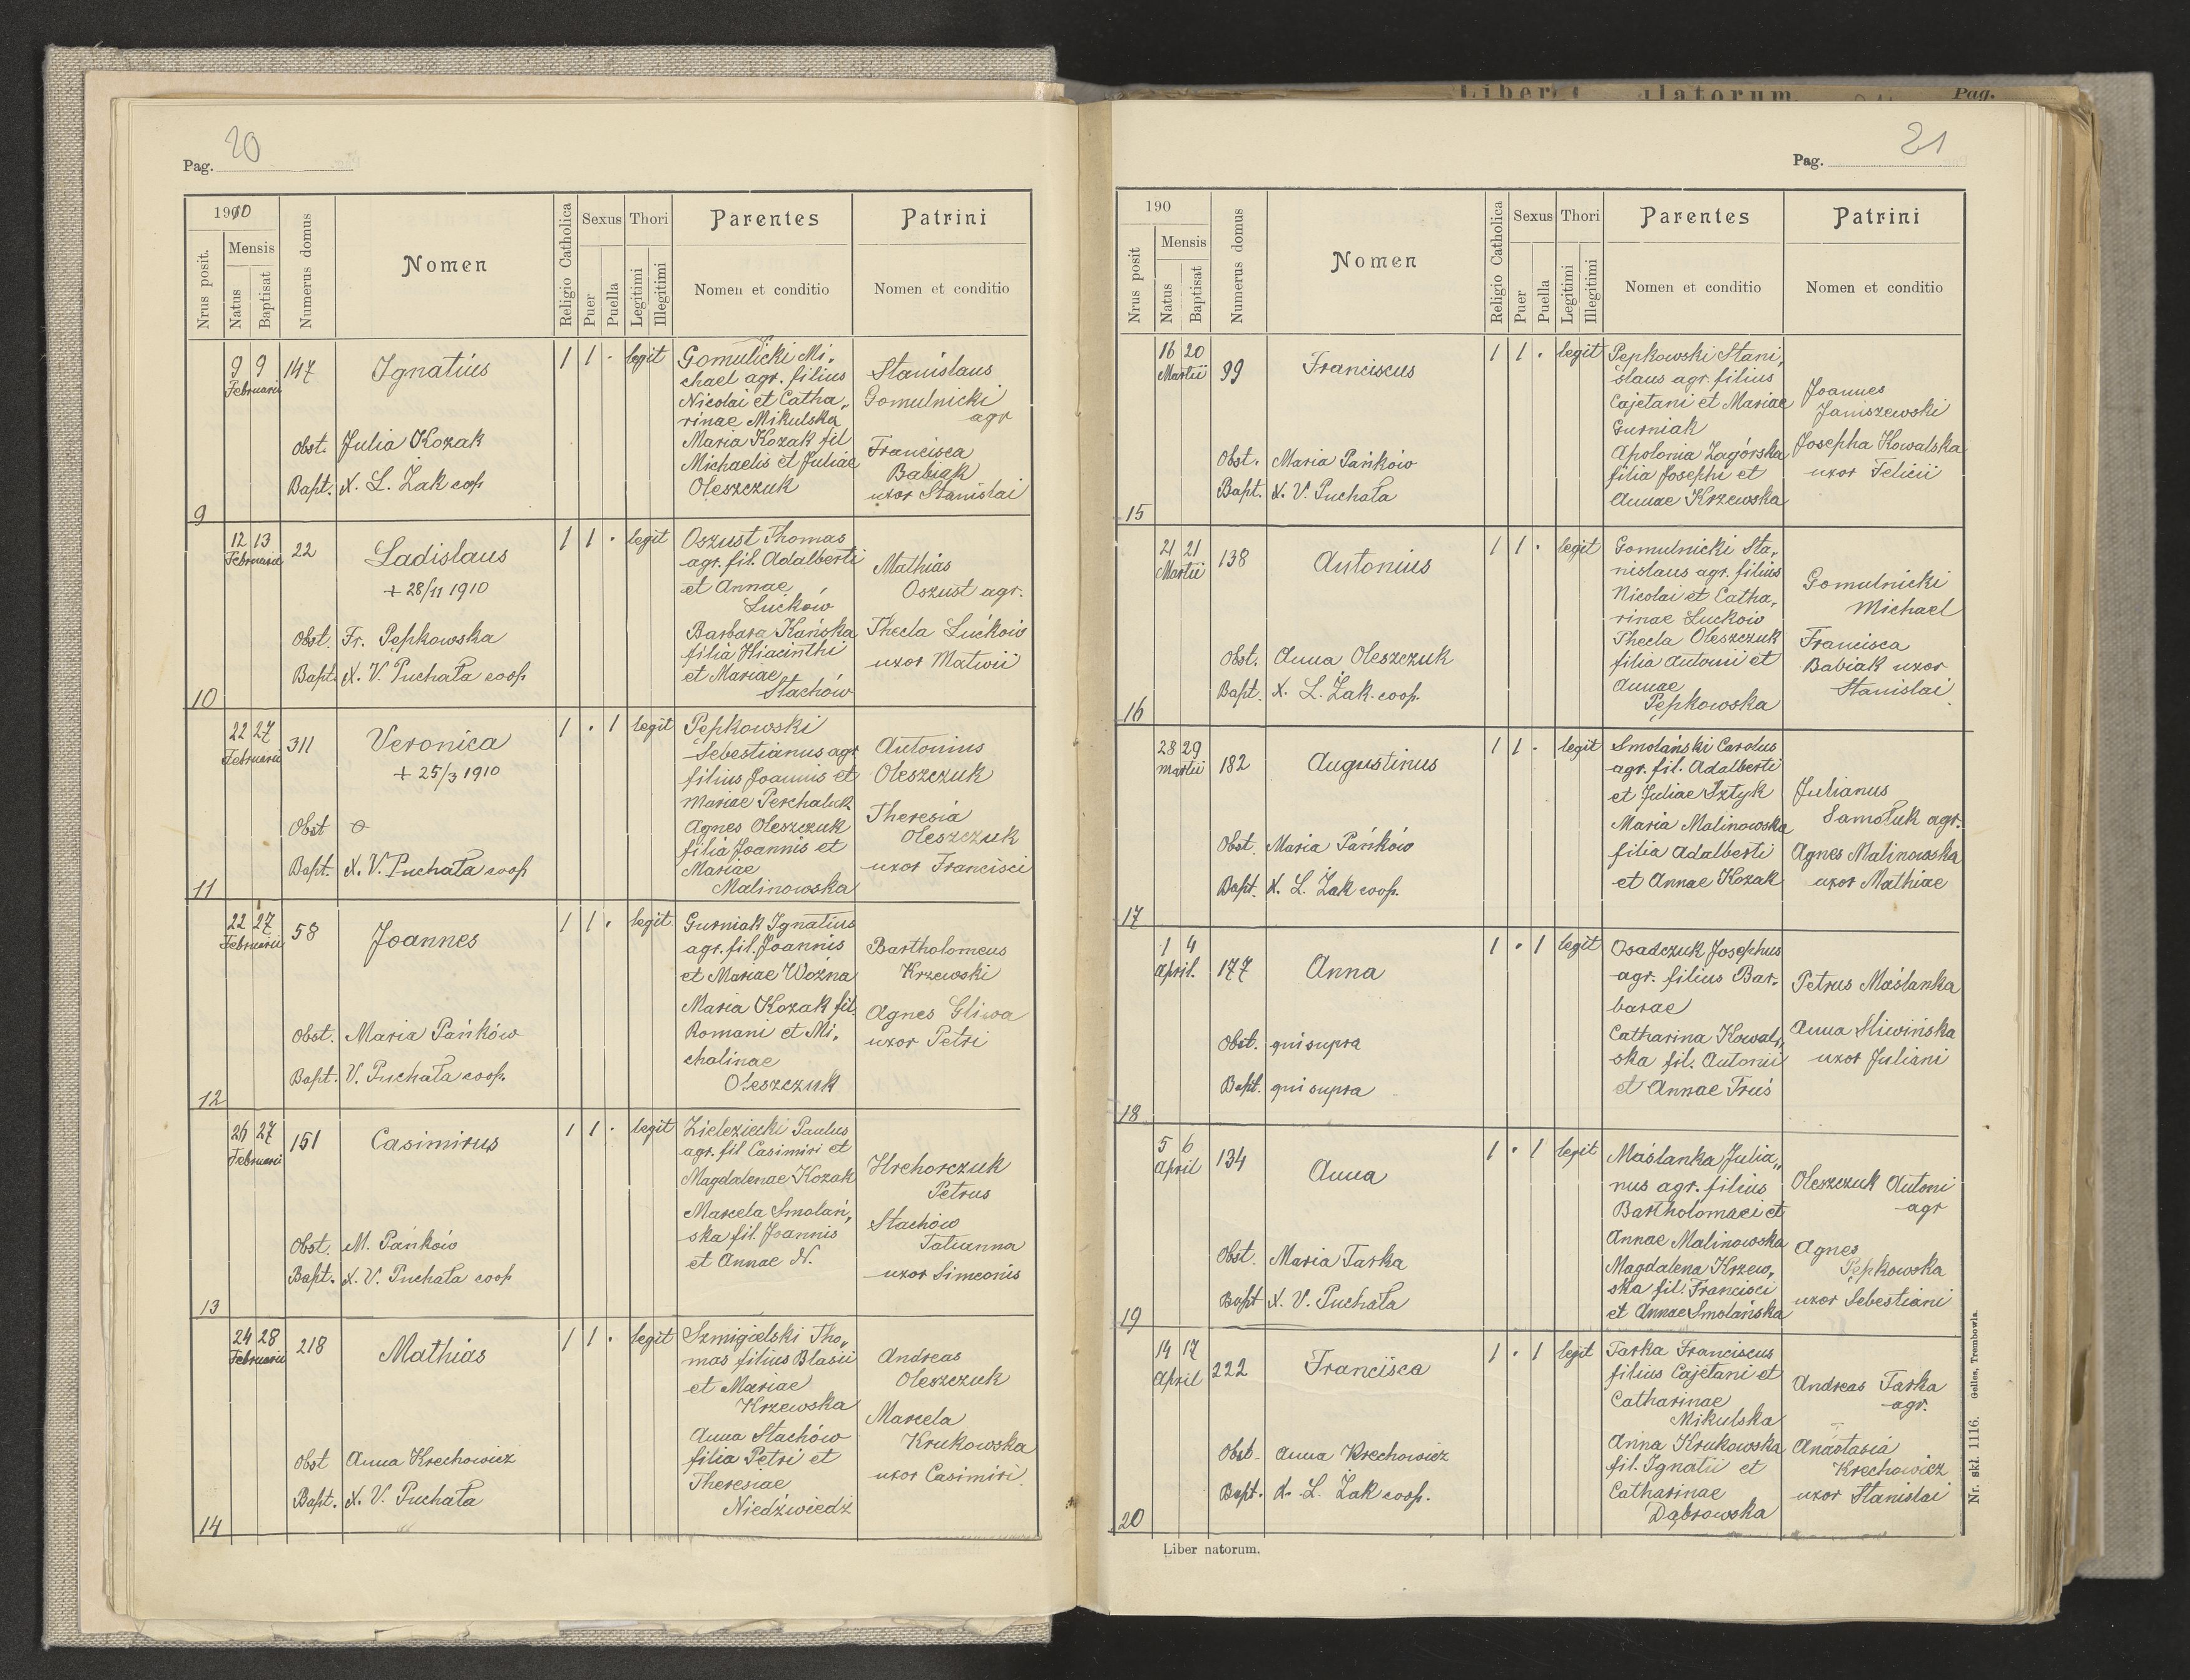 Liber
latorum.
Pag.
20
Pag.
1910
Nrus posit.
Mensis
Natus
Baptisat
Numerus domus
Nomen
Religio Catholica
Sexus
Puer
Puella
Thori
Legitimi
Illegitimi
Parentes
Nomen et conditio
Patrini
Nomen et conditio
9
9 9
Februarii
147
Ignatius
Obst. Julia Kozak
Bapt. X. L. Żak cop
1 1 · legit
Gomulicki Mi-
chael agr. filius
Nicolai et Catha-
rinae Mikulska
Maria Kozak fil
Michaelis et Juliae
Oleszczuk
Stanislaus
Gomulnicki
agr
Francisca
Babiak
uxor Stanislai
10
12 13
Februarii
22
Ladislaus
+ 28/11 1910
Obst. Fr. Pępkowska
Bapt. X. V. Puchała coop
1 1 · legit
Oszust Thomas
agr. fil. Adalberti
et Annae
Lućków
Barbara Kańska
filia Hiacinthi
et Mariae
Stachów
Mathias
Oszust agr.
Thecla Lućków
uxor Matwii
11
22 27
Februarii
311
Veronica
+ 25/3 1910
Obst
Bapt. X. V. Puchała coop
1 · 1 legit
Pępkowski
Sebestianus agr
filius Joannis et
Mariae Perchaluk
Agnes Oleszczuk
filia Joannis et
Mariae
Malinowska
Antonius
Oleszczuk
Theresia
Oleszczuk
uxor Francisci
12
22 27
Februarii
58
Joannes
Obst. Maria Pańków
Bapt. V. Puchała coop.
1 1 · legit
Gurniak Ignatius
agr. fil. Joannis
et Mariae Woźna
Maria Kozak fil.
Romani et Mi-
chalinae
Oleszczuk
Bartholomeus
Krzewski
Agnes Gliwa
uxor Petri
13
26 27
Februarii
151
Casimirus
Obst. M. Pańków
Bapt. X. V. Puchała coop
1 1 · legit
Zieleziecki Paulus
agr. fil Casimiri et
Magdalenae Kozak
Marcela Smolań-
ska fil. Joannis
et Annae N.
Hrehorczuk
Petrus
Stachów
Tatianna
uxor Simeonis
14
24 28
Februarii
218
Mathias
Obst Anna Krechowicz
Bapt. X. V. Puchała
1 1 · legit
Szmigielski Tho-
mas filius Blasii
et Mariae
Krzewska
Anna Stachów
filia Petri et
Theresiae
Niedźwiedz
Andreas
Oleszczuk
Marcela
Krukowska
uxor Casimiri
21
Pag.
190
Nrus posit
Mensis
Natus
Baptisat
Numerus domus
Nomen
Religio Catholica
Sexus
Puer
Puella
Thori
Legitimi
Illegitimi
Parentes
Nomen et conditio
Patrini
Nomen et conditio
15
16 20
Martii
99
Franciscus
Obst. Maria Pańków
Bapt. X. V. Puchała
1 1 · legit
Pępkowski Stani-
slaus agr. filius
Cajetani et Mariae
Gurniak
Apolonia Zagórska
filia Josephi et
Annae Krzewska
Joannes
Janiszewski
Josepha Kowalska
uxor Felicii
16
21 21
Martii
138
Antonius
Obst. Anna Oleszczuk
Bapt. X. L. Żak. coop.
1 1 · legit
Gomulnicki Sta-
nislaus agr. filius
Nicolai et Catha-
rinae Luckow
Thecla Oleszczuk
filia Antonii et
Annae
Pępkowska
Gomulnicki
Michael
Francisca
Babiak uxor
Stanislai
17
28 29
Martii
182
Augustinus
Obst. Maria Pańków
Bapt. X. L. Żak coop.
1 1 · legit
Smolański Carolus
agr. fil. Adalberti
et Juliae Sztyk
Maria Malinowska
filia Adalberti
et Annae Kozak
Julianus
Samoluk agr.
Agnes Malinowska
uxor Mathiae
18
1 4
April.
177
Anna
Obst. qui supra
Bapt. qui supra
1 · 1 legit
Osadczuk Josephus
agr. filius Bar-
barae
Catharina Kowal-
ska fil. Antonii
et Annae Truś
Petrus Maślanka
Anna Sliwińska
uxor Juliani
19
5 6
April
134
Anna
Obst. Maria Tarka
Bapt X. V. Puchała
1 · 1 legit
Maślanka Julia-
nus agr. filius
Bartholomaei et
Annae Malinowska
Magdalena Krzew-
ska fil. Francisci
et Annae Smolańska
Oleszczuk Antoni
agr
Agnes
Pępkowska
uxor Sebestiani
20
14 17
April
222
Francisca
Obst. Anna Krechowicz
Bapt. X. L. Żak coop.
1 · 1 legit
Tarka Franciscus
filius Cajetani et
Catharinae
Mikulska
Anna Krukowska
fil. Ignatii et
Catharinae
Dąbrowska
Andreas Tarka
agr.
Anastasia
Krechowicz
uxor Stanislai
Liber natorum.
Nr. skł. 1116. Gelles, Trembowla.